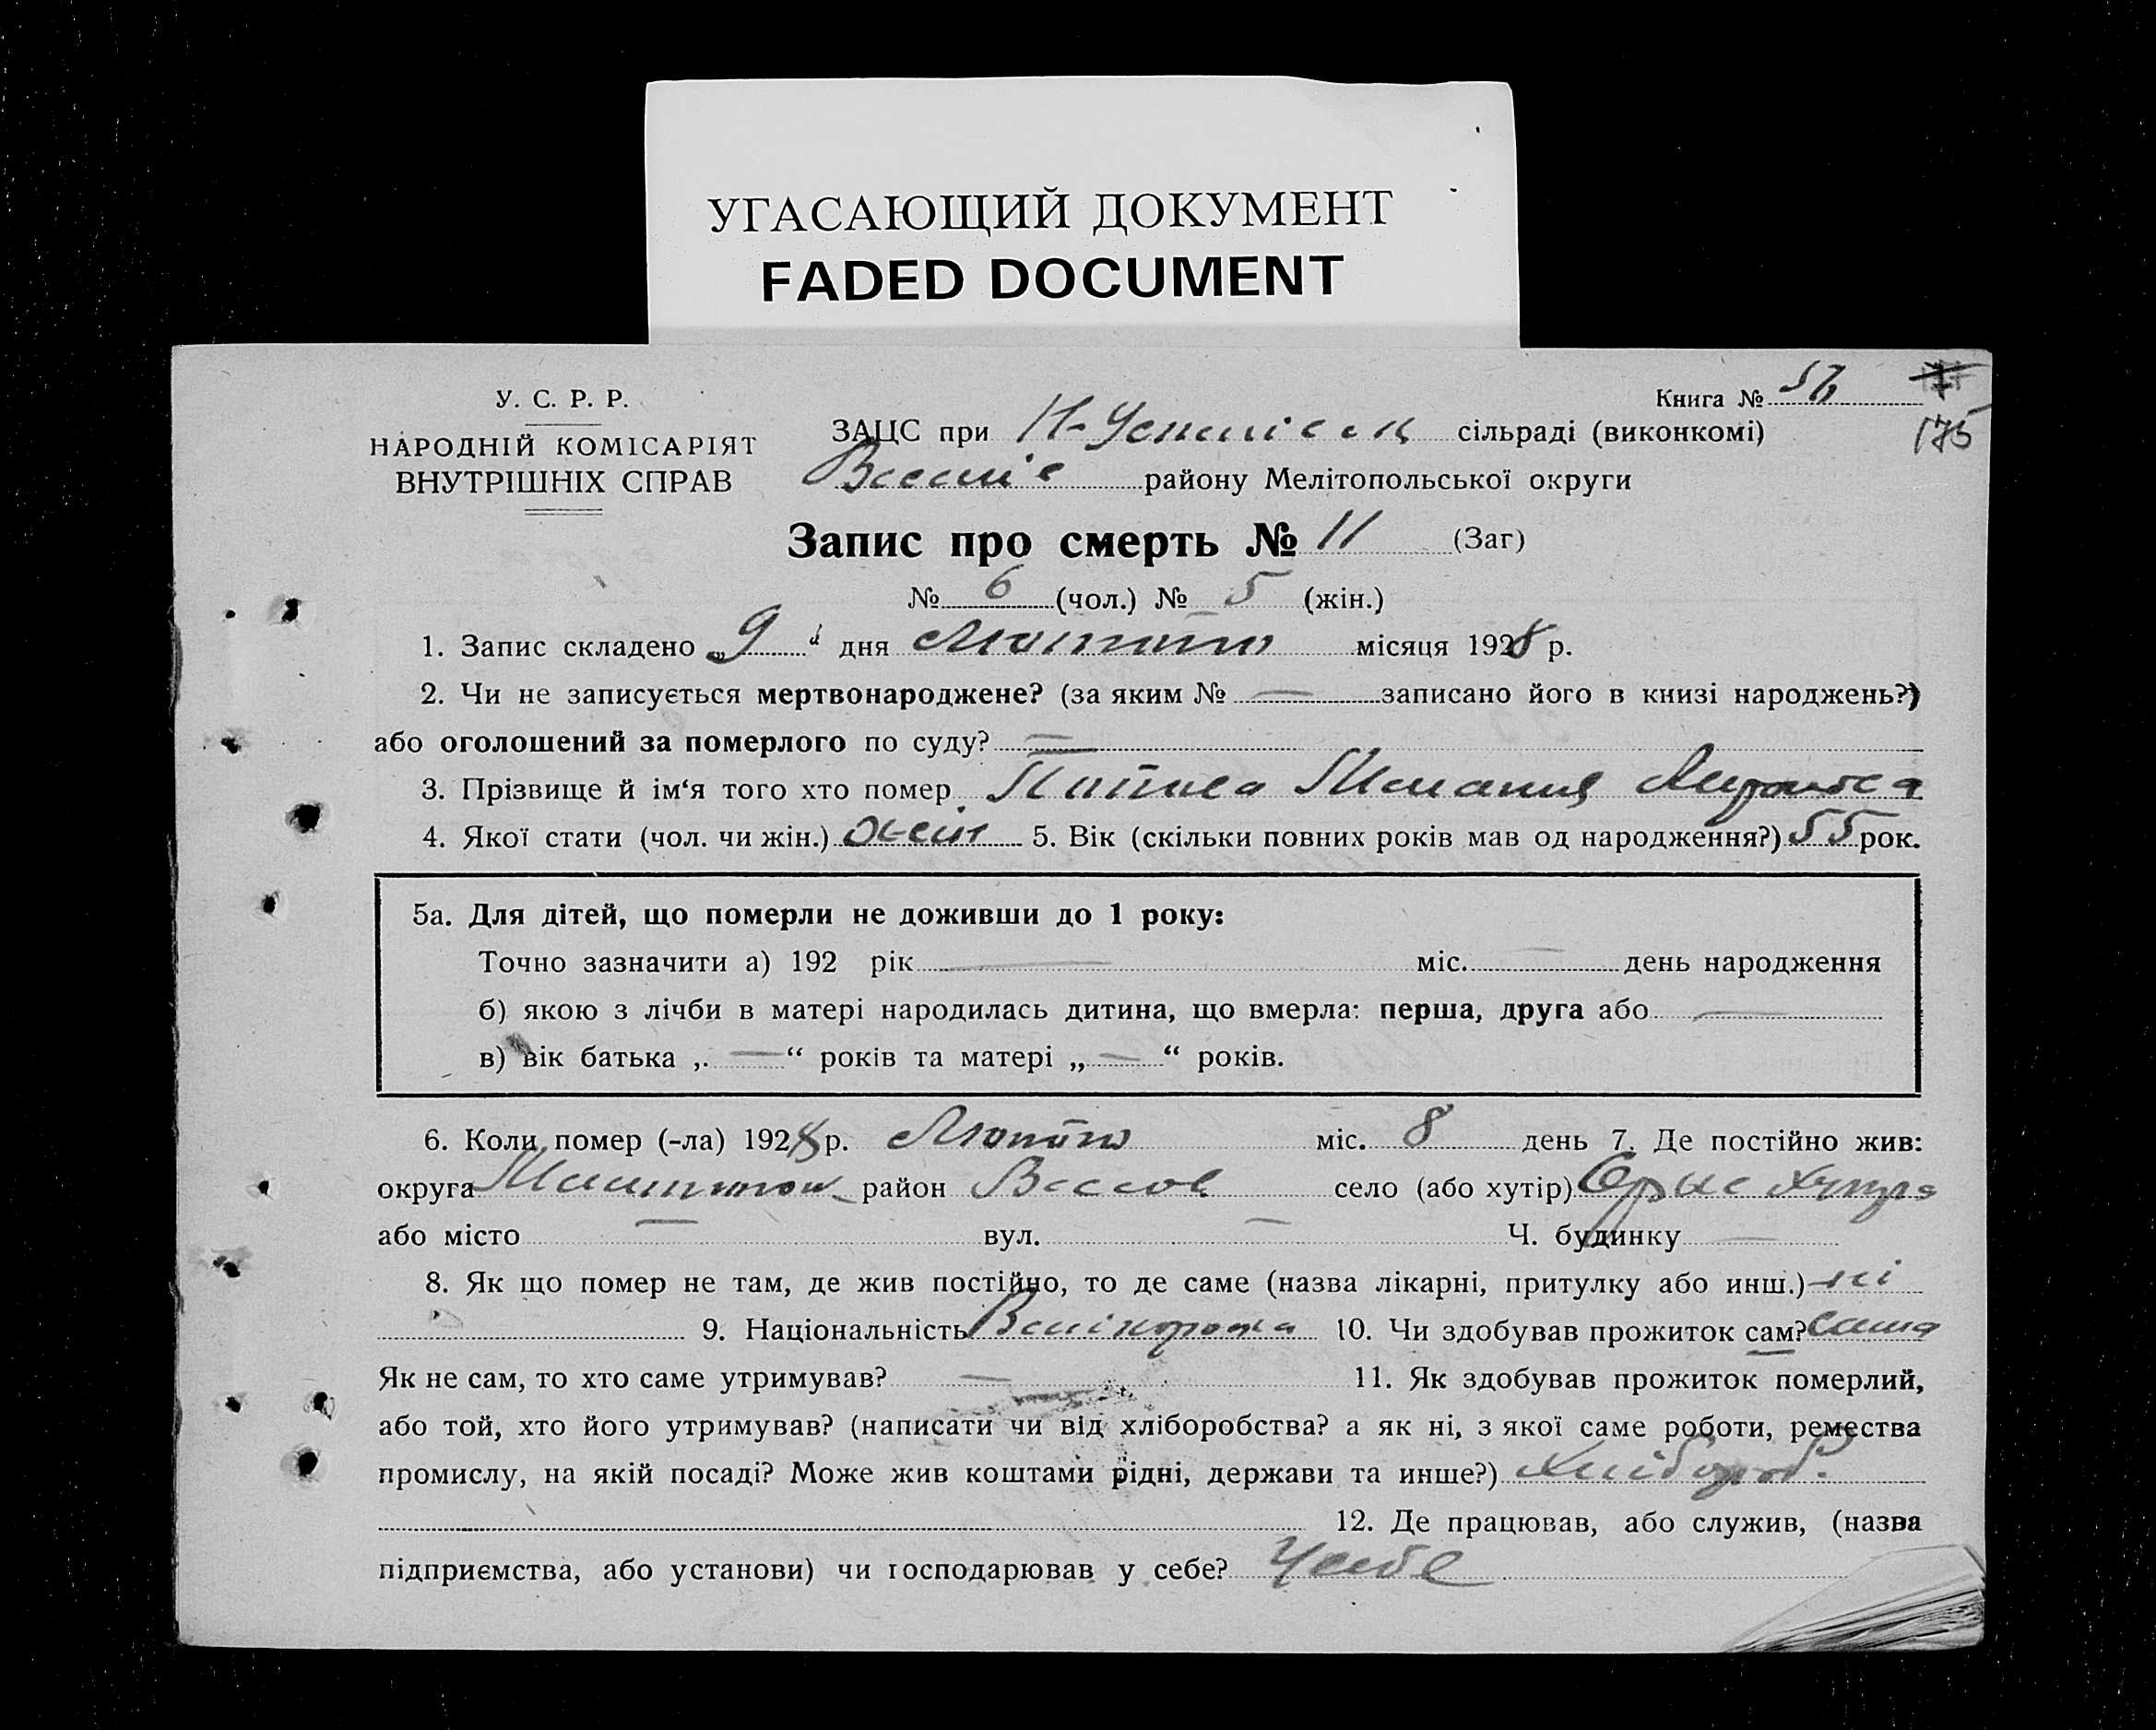 УГАСАЮЩИЙ ДОКУМЕНТ
FADED DOCUMENT
У. С. Р. Р.
НАРОДНІЙ КОМІСАРІЯТ
ВНУТРІШНІХ СПРАВ
Книга №
175
ЗАЦС при сільраді (виконкомі)
району Мелітопольської округи
Запис про смерть № 11 (Заг)
№ 6 (чол.) № 5 (жін.)
1. Запис складено „ 9 " дня Лютого місяця 1928 р.
2. Чи не записується мертвонароджене? (за яким № — записано його в книзі народжень?)
або оголошений за померлого по суду? —
3. Прізвище й ім‘я того хто помер
4. Якої стати (чол. чи жін.) 5. Вік (скільки повних років мав од народження?) 55 рок.
5а. Для дітей, що померли не доживши до 1 року:
Точно зазначити а) 192 рік — міс. — день народження
б) якою з лічби в матері народилась дитина, що вмерла: перша, друга або —
в) вік батька „ — “ років та матері „ — “ років.
6. Коли помер (-ла) 1928 р. Лютого міс. 8 день 7. Де постійно жив:
округа район село (або хутір)
або місто — вул. — Ч. будинку —
8. Як що помер не там, де жив постійно, то де саме (назва лікарні, притулку або инш.) ні
9. Національність 10. Чи здобував прожиток сам? сама
Як не сам, то хто саме утримував? — 11. Як здобував прожиток померлий,
або той, хто його утримував? (написати чи від хліборобства? а як ні, з якої саме роботи, ремества
промислу, на якій посаді? Може жив коштами рідні, держави та инше?) Хлібороб.
12. Де працював, або служив, (назва
підприємства, або установи) чи господарював у себе? У себе